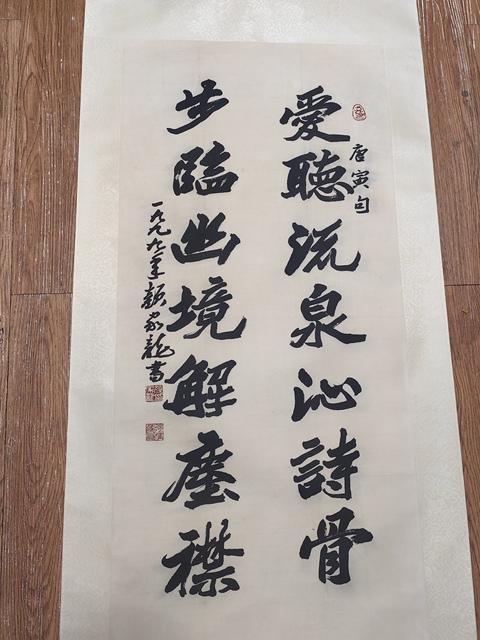 愛聽流泉沁詩骨
唐寅句
步臨幽境解塵襟
一九九九年顏家龍書